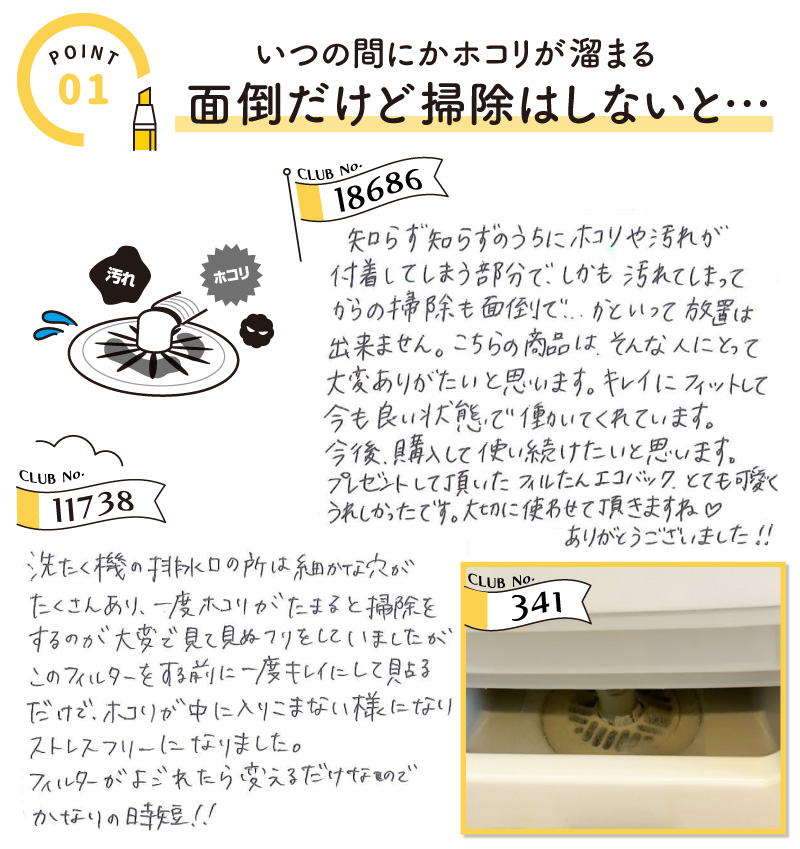 POINT
01
いつの間にかホコリが溜まる
面倒だけど掃除はしないと…
汚れ
ホコリ
CLUB No.
18686
知らず知らずのうちにホコリや汚れが
付着してしまう部分で、しかも 汚れてしまって
からの掃除も面倒で… かといって 放置は
出来ません。こちらの商品は、そんな人にとって
大変ありがたいと思います。キレイにフィットして
今も良い状態で働いてくれています。
今後、購入して使い続けたいと思います。
プレゼントして頂いた フィルたんエコバック、とても可愛く
うれしかったです。大切に使わせて頂きますね♡
ありがとうございました!!
CLUB No.
11738
洗たく機の排水口の所は細かな穴が
たくさんあり、一度ホコリがたまると掃除を
するのが大変で見て見ぬフリをしていましたが
このフィルターをする前に一度キレイにして貼る
だけで、ホコリが中に入りこまない様になり
ストレスフリーになりました。
フィルターがよごれたら変えるだけなので
かなりの時短!!
CLUB No.
341